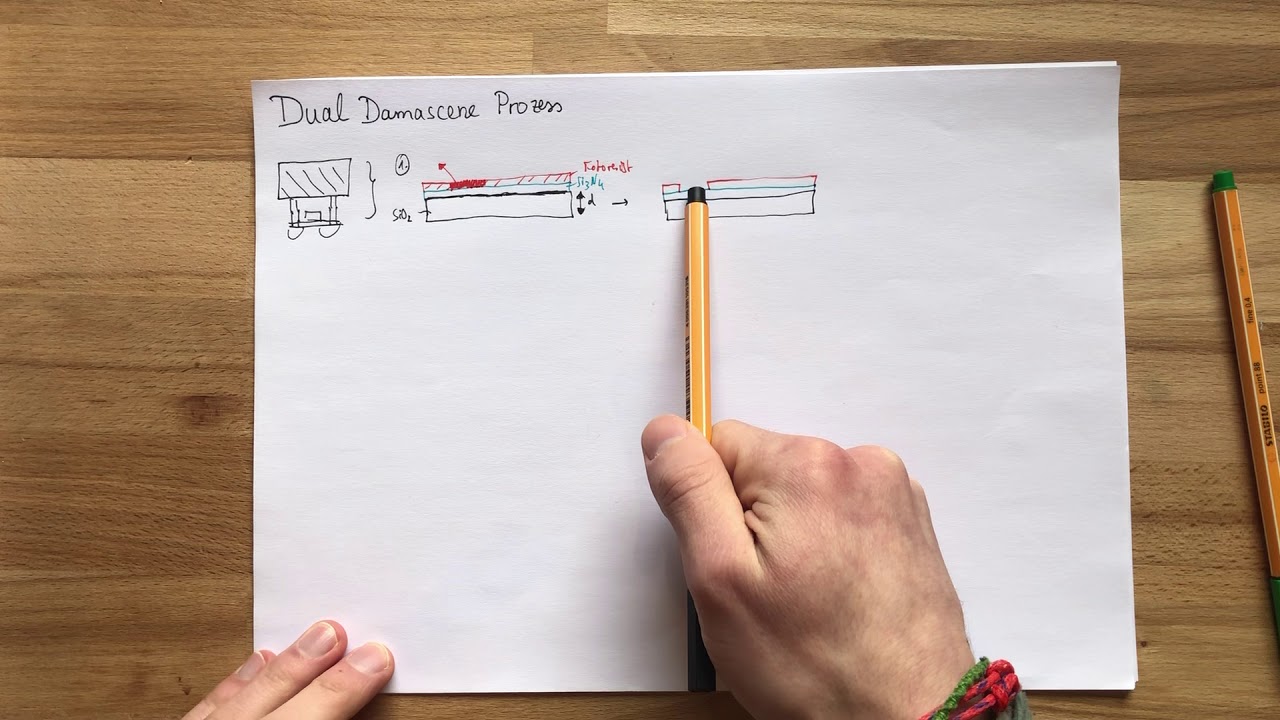 Dual Damascene Prozess
1.
Fotoresist
Si3N4
d
SiO₂
fine 0,4
point 88
STABILO